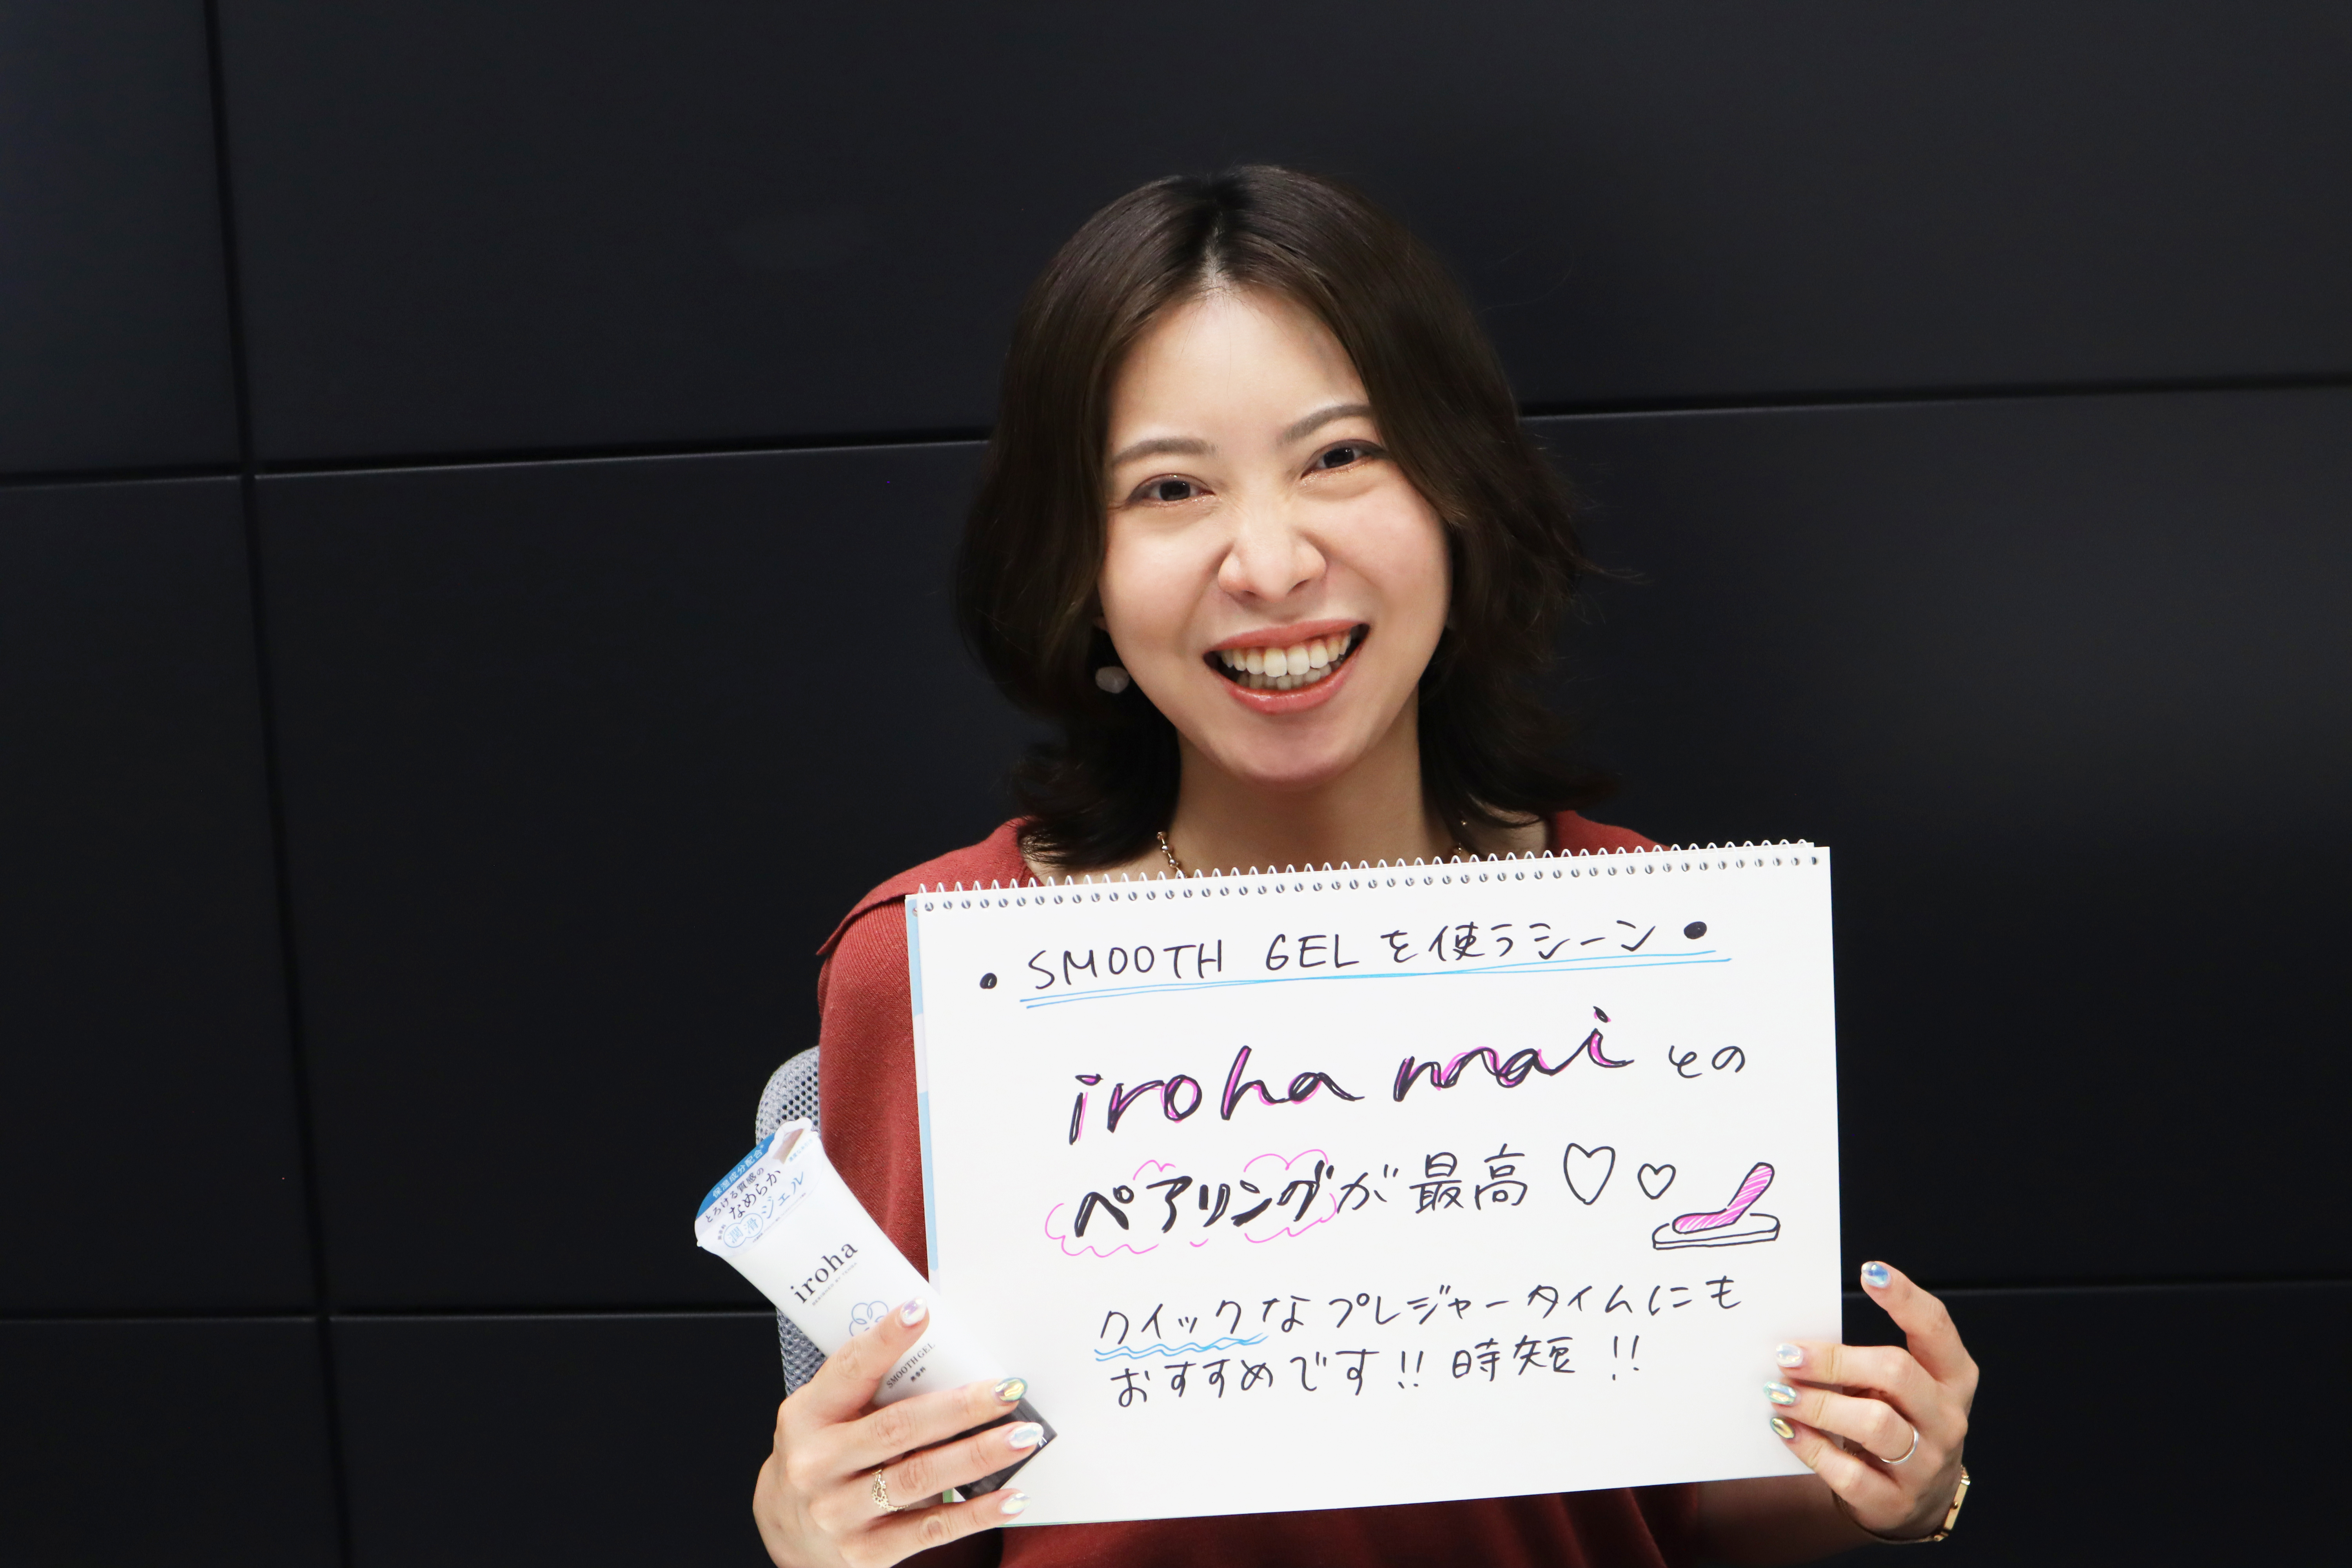 • SMOOTH GEL を使うシーン •
iroha mai との
ペアリングが最高♡♡
クイックなプレジャータイムにも
おすすめです!! 時短!!
保湿成分配合
とろける質感の
なめらか
潤滑ジェル
iroha
SMOOTH GEL